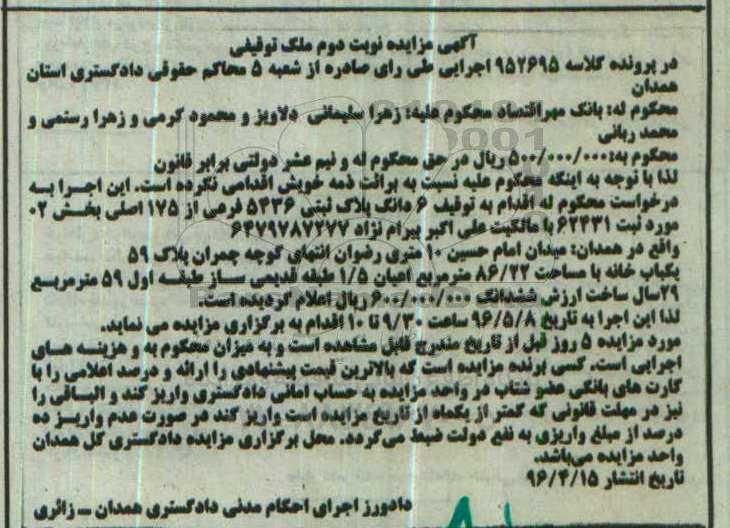 آگهی مزایده نوبت دوم ملک توقیفی
در پرونده کلاسه ۹۵۲۶۹۵ اجرایی طی رای صادره از شعبه ۵ محاکم حقوقی دادگستری استان
همدان
محکوم له: بانک مهراقتصاد محکوم علیه: زهرا سلیمانی دلاویز و محمود کرمی و زهرا رستمی و
محمد ربانی
محکوم به: ۵۰۰/۰۰۰/۰۰۰ ریال در حق محکوم له و نیم عشر دولتی برابر قانون
لذا با توجه به اینکه محکوم علیه نسبت به برائت ذمه خویش اقدامی نکرده است. این اجرا به
درخواست محکوم له اقدام به توقیف ۶ دانگ پلاک ثبتی ۵۴۳۶ فرعی از ۱۷۵ اصلی بخش ۰۲
مورد ثبت ۶۲۴۳۱ با مالکیت علی اکبر بیرام نژاد ۶۴۷۹۷۸۷۲۷۷
واقع در همدان: میدان امام حسین ۱۰ متری رضوان انتهای کوچه چمران پلاک ۵۹
یکباب خانه با مساحت ۸۶/۲۲ مترمربع اعیان ۱/۵ طبقه قدیمی ساز طبقه اول ۵۹ مترمربع
۲۹سال ساخت ارزش ششدانگ ۶۰۰/۰۰۰/۰۰۰ ریال اعلام گردیده است.
لذا این اجرا به تاریخ ۹۶/۵/۸ ساعت ۹/۳۰ تا ۱۰ اقدام به برگزاری مزایده می نماید.
مورد مزایده ۵ روز قبل از تاریخ مندرج قابل مشاهده است و به میزان محکوم به و هزینه های
اجرایی است. کسی برنده مزایده است که بالاترین قیمت پیشنهادی را ارائه و درصد اعلامی را با
کارت های بانکی عضو شتاب در واحد مزایده به حساب امانی دادگستری واریز کند و الباقی را
نیز در مهلت قانونی که کمتر از یکماه از تاریخ مزایده است واریز کند در صورت عدم واریز ده
درصد از مبلغ واریزی به نفع دولت ضبط می‌گردد. محل برگزاری مزایده دادگستری کل همدان
واحد مزایده می‌باشد.
تاریخ انتشار ۹۶/۴/۱۵
دادورز اجرای احکام مدنی دادگستری همدان ـ زائری